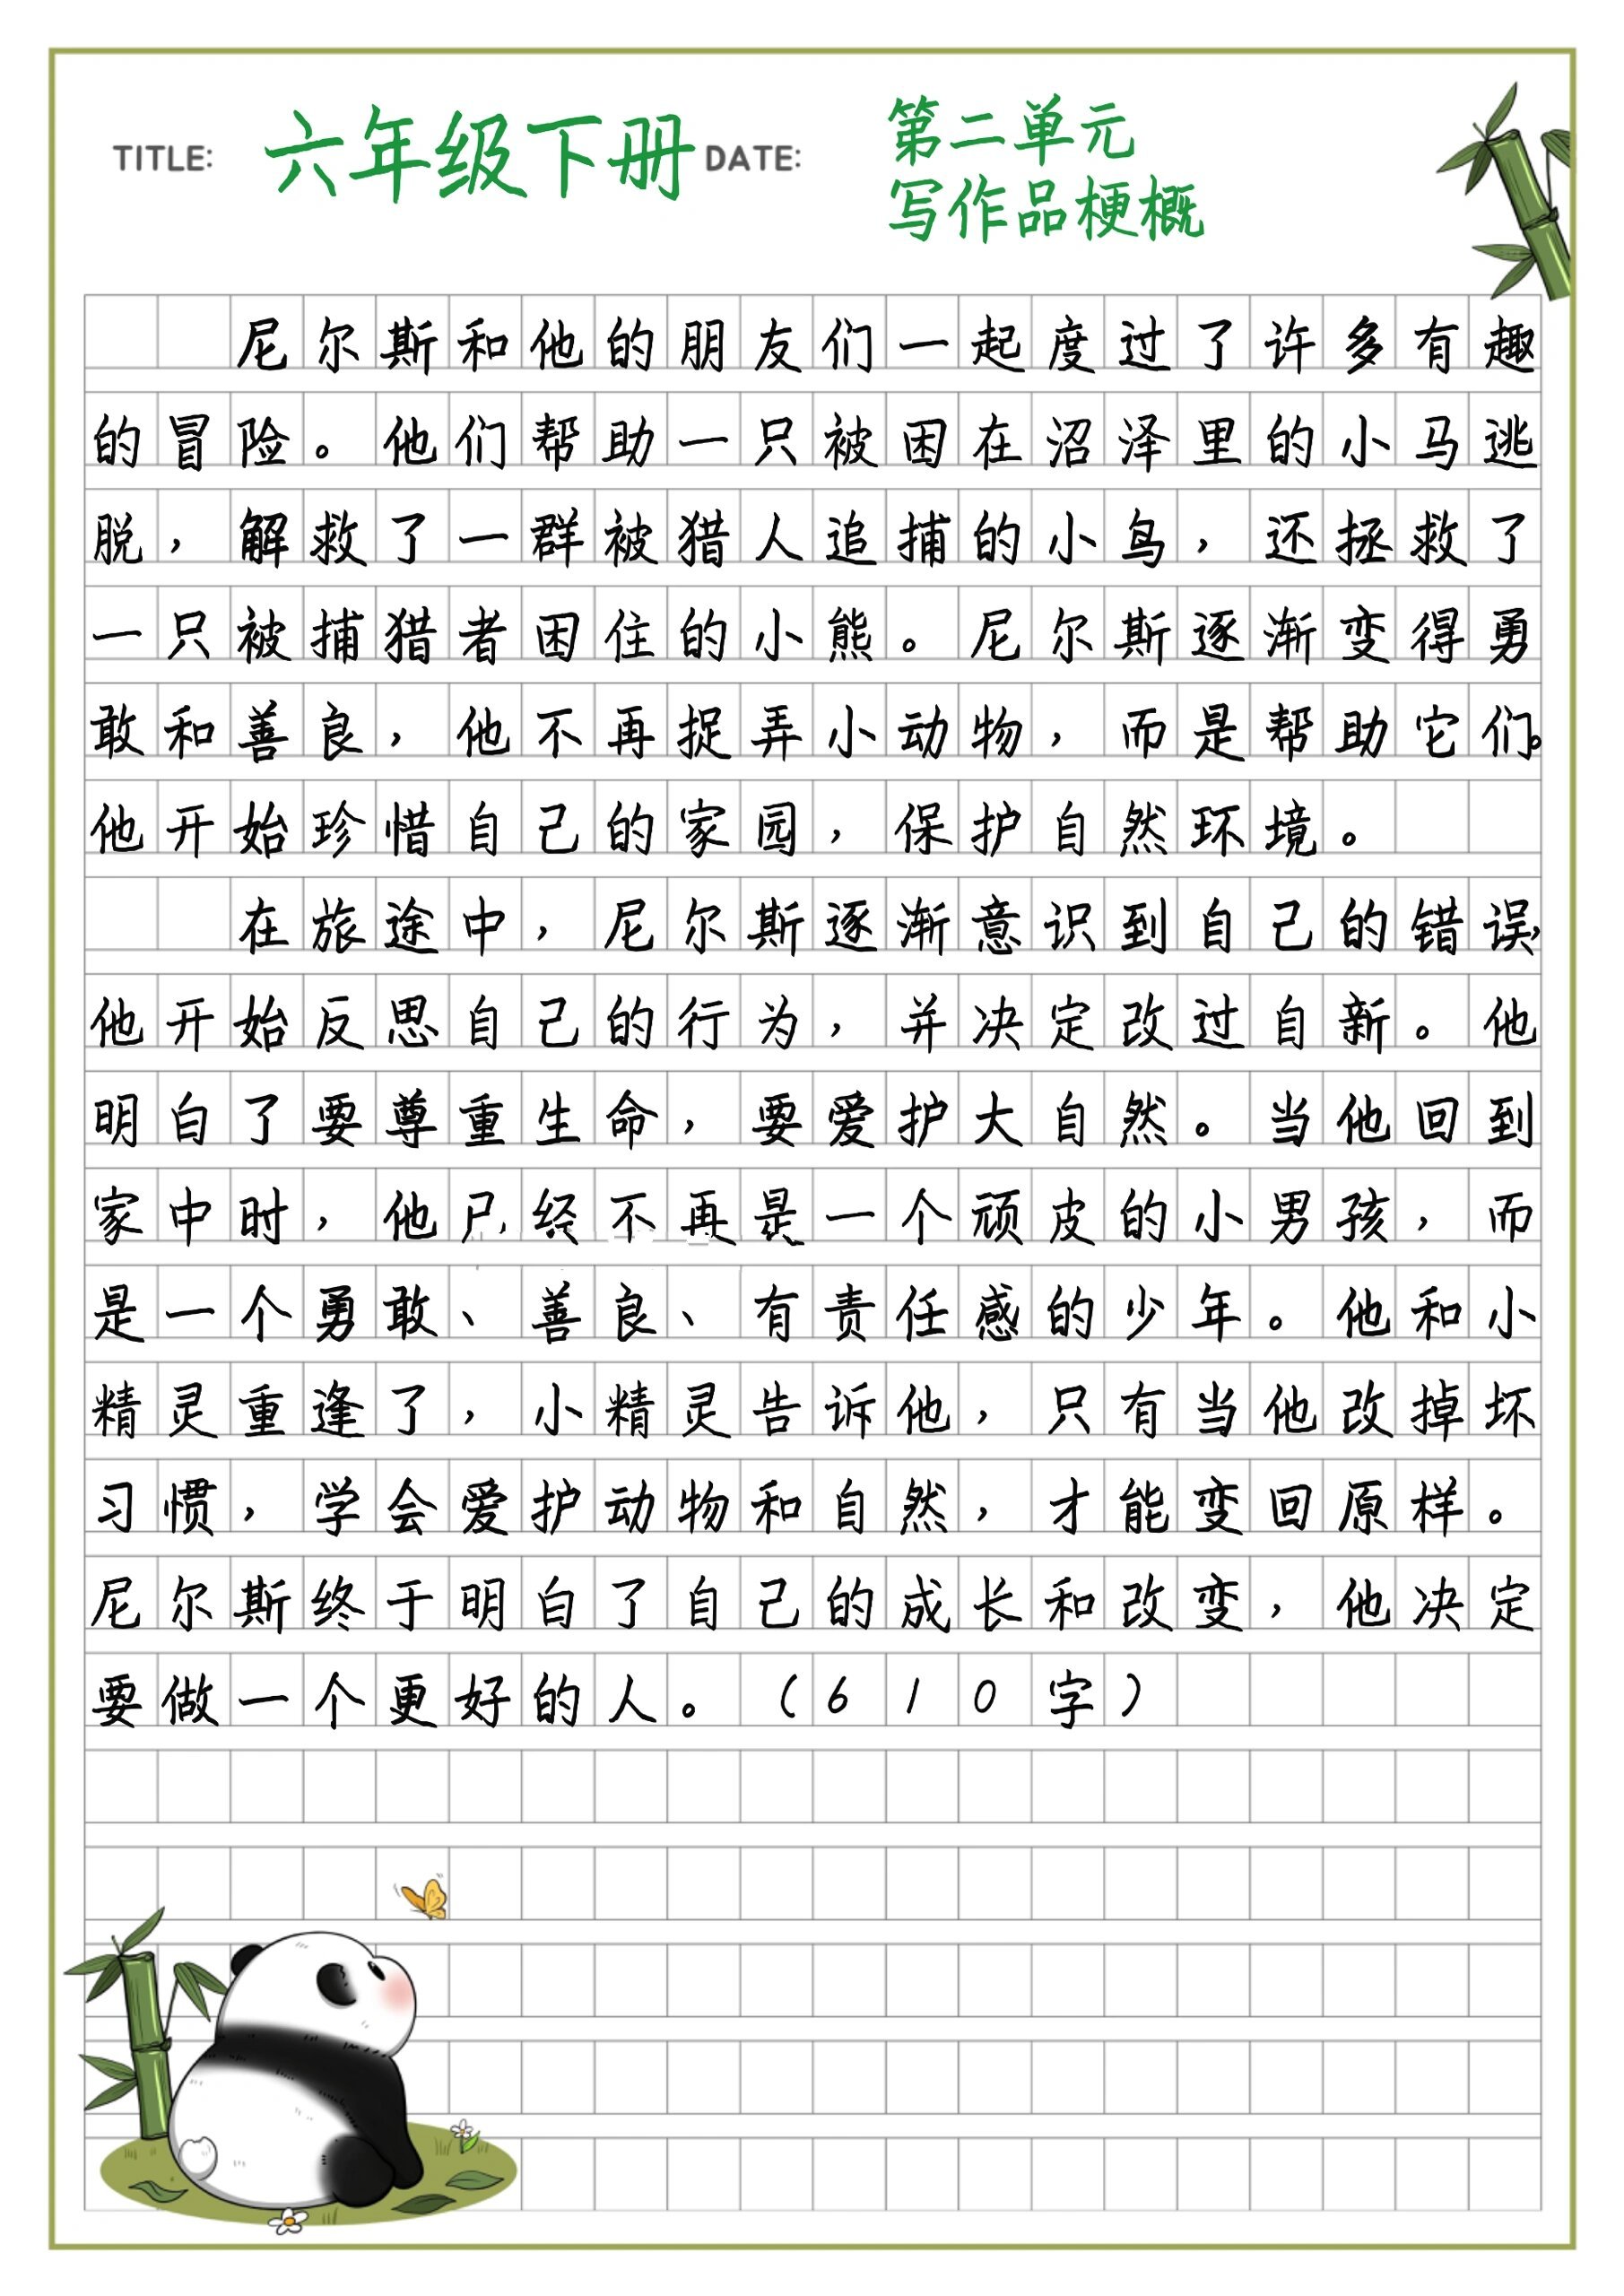 TITLE: 六年级下册 DATE: 第二单元
写作品梗概
尼尔斯和他的朋友们一起度过了许多有趣
的冒险。他们帮助一只被困在沼泽里的小马逃
脱，解救了一群被猎人追捕的小鸟，还拯救了
一只被捕猎者困住的小熊。尼尔斯逐渐变得勇
敢和善良，他不再捉弄小动物，而是帮助它们。
他开始珍惜自己的家园，保护自然环境。
在旅途中，尼尔斯逐渐意识到自己的错误，
他开始反思自己的行为，并决定改过自新。他
明白了要尊重生命，要爱护大自然。当他回到
家中时，他已经不再是一个顽皮的小男孩，而
是一个勇敢、善良、有责任感的少年。他和小
精灵重逢了，小精灵告诉他，只有当他改掉坏
习惯，学会爱护动物和自然，才能变回原样。
尼尔斯终于明白了自己的成长和改变，他决定
要做一个更好的人。（610字）